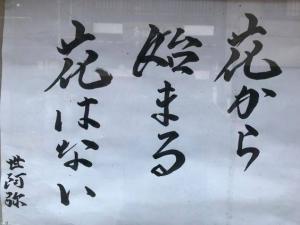 花から
始まる
花はない
世阿弥